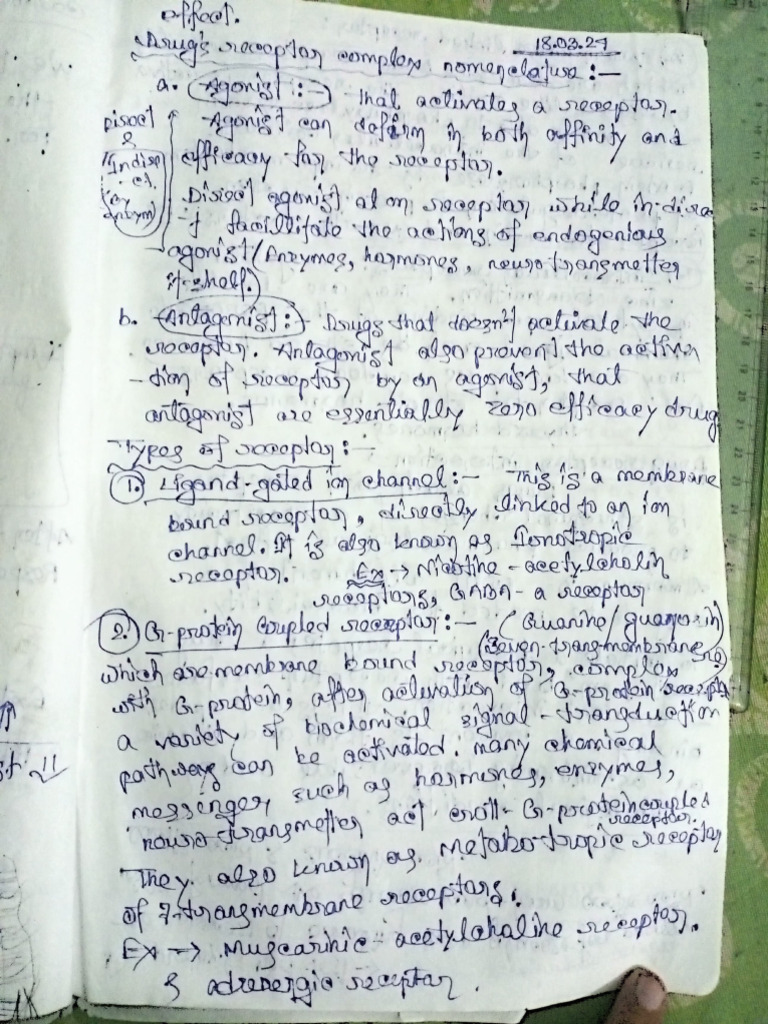 effect.
18.03.27
Drug's receptor complex nomenclature :-
a. Agonist :- that activates a receptor.
Agonist can defirm in both affinity and
efficacy for the receptor.
Direct
&
Indire
ct
(by
enzym)
Direct agonist at on receptor while in-direc
-t facillitate the actions of endogenious
agonist (Enzymes, harmones, neurotransmetter
it-shelf.)
b. Antagonist :- Drugs that doesn't activate the
receptor. Antagonist also prevent the activa
-tion of receptor by an agonist, that
antagonist are essentially zero efficacy drug
Types of receptor :-
1. Ligand-gated ion channel :- This is a membrane
bound receptor, directly linked to an ion
channel. It is also known as Ionotropic
receptor. Ex → Nicotine - acetylcholin
receptors, GABA - a receptor
2. G-protein Coupled receptor :- (Guanine/guanosin)
(Seven-transmembrane re)
which are membrane bound receptor, complex
with G-protein, after activation of G-protein receptor
a variety of biochemical signal-transduction
pathways can be activated. many chemical
messenger such as harmones, enzymes,
neurotransmetter act with G-protein coupled
receptor.
They also known as Metabotropic receptor
of 7-transmembrane receptors.
Ex → Muscarinic - acetylchaline receptor.
& adrenergic receptor.
11